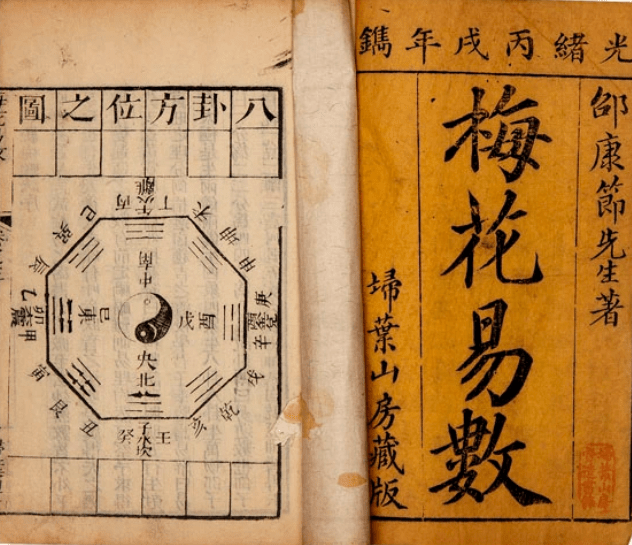 光緒丙戌年鐫
邵康節先生著
梅花易數
埽葉山房藏版
八卦方位之圖
丙午丁
離火
未坤申
庚
辛
戌乾亥
壬子癸
水坎
丑艮寅
甲卯乙
辰巽巳
中南
東己
戊酉
央北